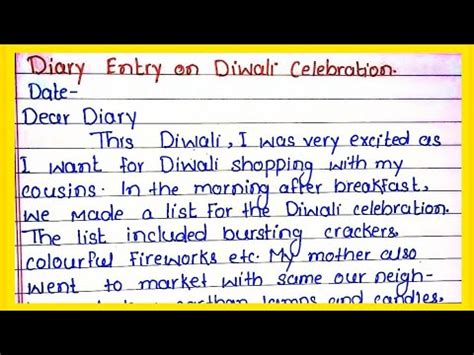 Diary Entry on Diwali Celebration.
Date-
Dear Diary
This Diwali, I was very excited as
I want for Diwali shopping with my
cousins. In the morning after breakfast,
we made a list for the Diwali celebration.
The list included bursting crackers,
colourful fireworks etc. My mother also
went to market with same our neigh-
earthan lamps and candles.